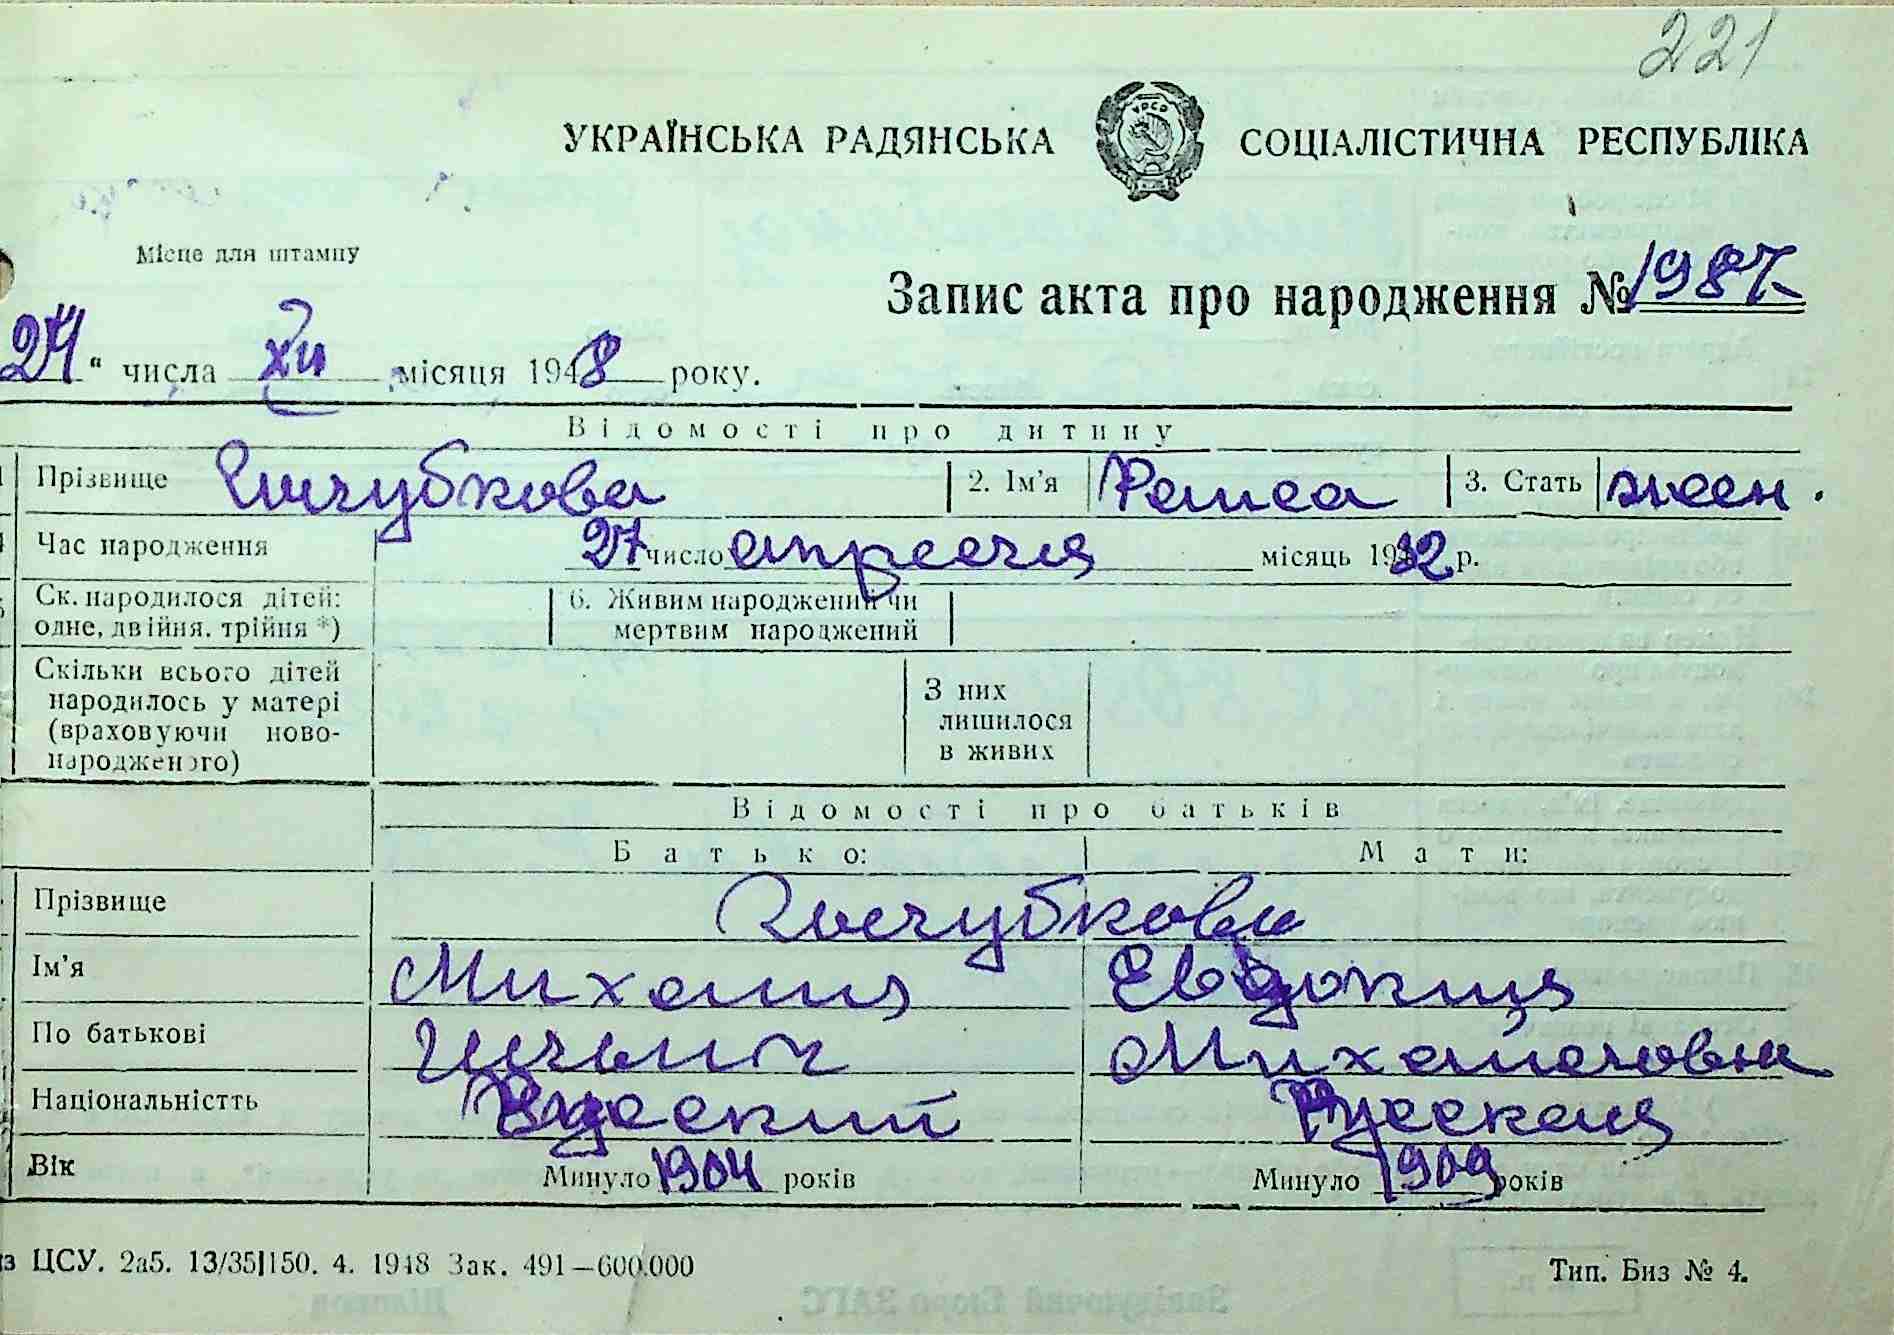 221
УКРАЇНСЬКА РАДЯНСЬКА СОЦІАЛІСТИЧНА РЕСПУБЛІКА
УРСР
Місце для штампу
Запис акта про народження № 1987
24 " числа XII місяця 1948 року.
Відомості про дитину
Прізвище 2. Ім'я Раиса 3. Стать жен.
Час народження 27 число апреля місяць 1932 р.
Ск. народилося дітей: одне, двійня, трійня *) 6. Живим народжений чи мертвим народжений
Скільки всього дітей народилось у матері (враховуючи новонародженого) З них лишилося в живих
Відомості про батьків
Батько: Мати:
Прізвище
Ім'я Михаил Евдокия
По батькові Ильич Михайловна
Національністть Русский Русская
Вік Минуло 1904 років Минуло 1909 років
ЦСУ. 2а5. 13/35|150. 4. 1948 Зак. 491—600.000 Тип. Биз № 4.